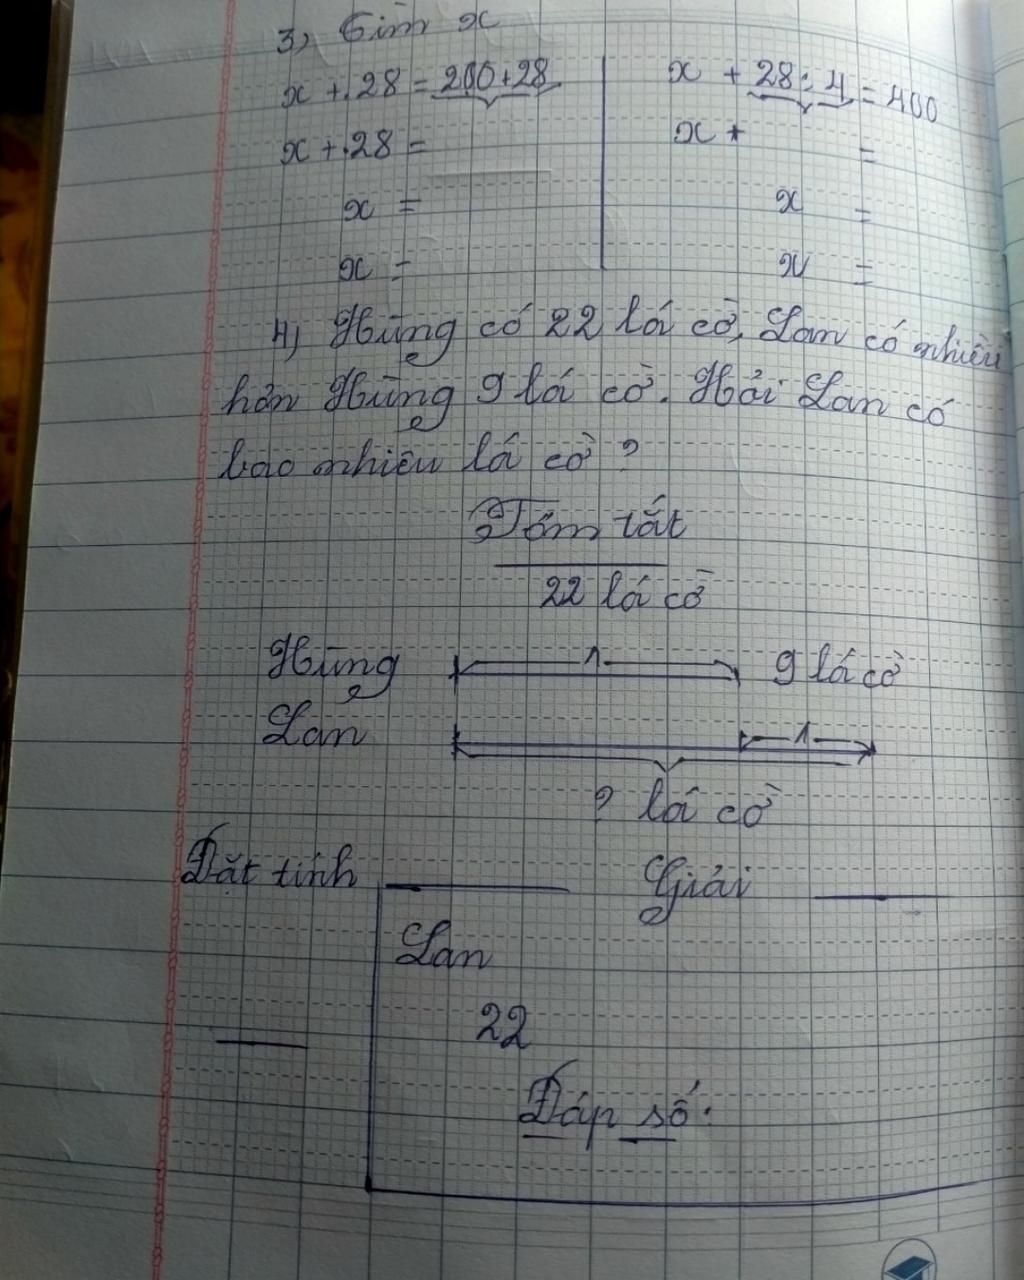 3, Tìm x
x + 28 = 200 + 28
x + 28 =
x =
x =
x + 28 : 4 = 400
x + =
x =
x =
4, Hùng có 22 lá cờ, Lan có nhiều
hơn Hùng 9 lá cờ. Hỏi Lan có
bao nhiêu lá cờ ?
Tóm tắt
22 lá cờ
Hùng 9 lá cờ
Lan
? lá cờ
Đặt tính Giải
Lan
22
Đáp số: